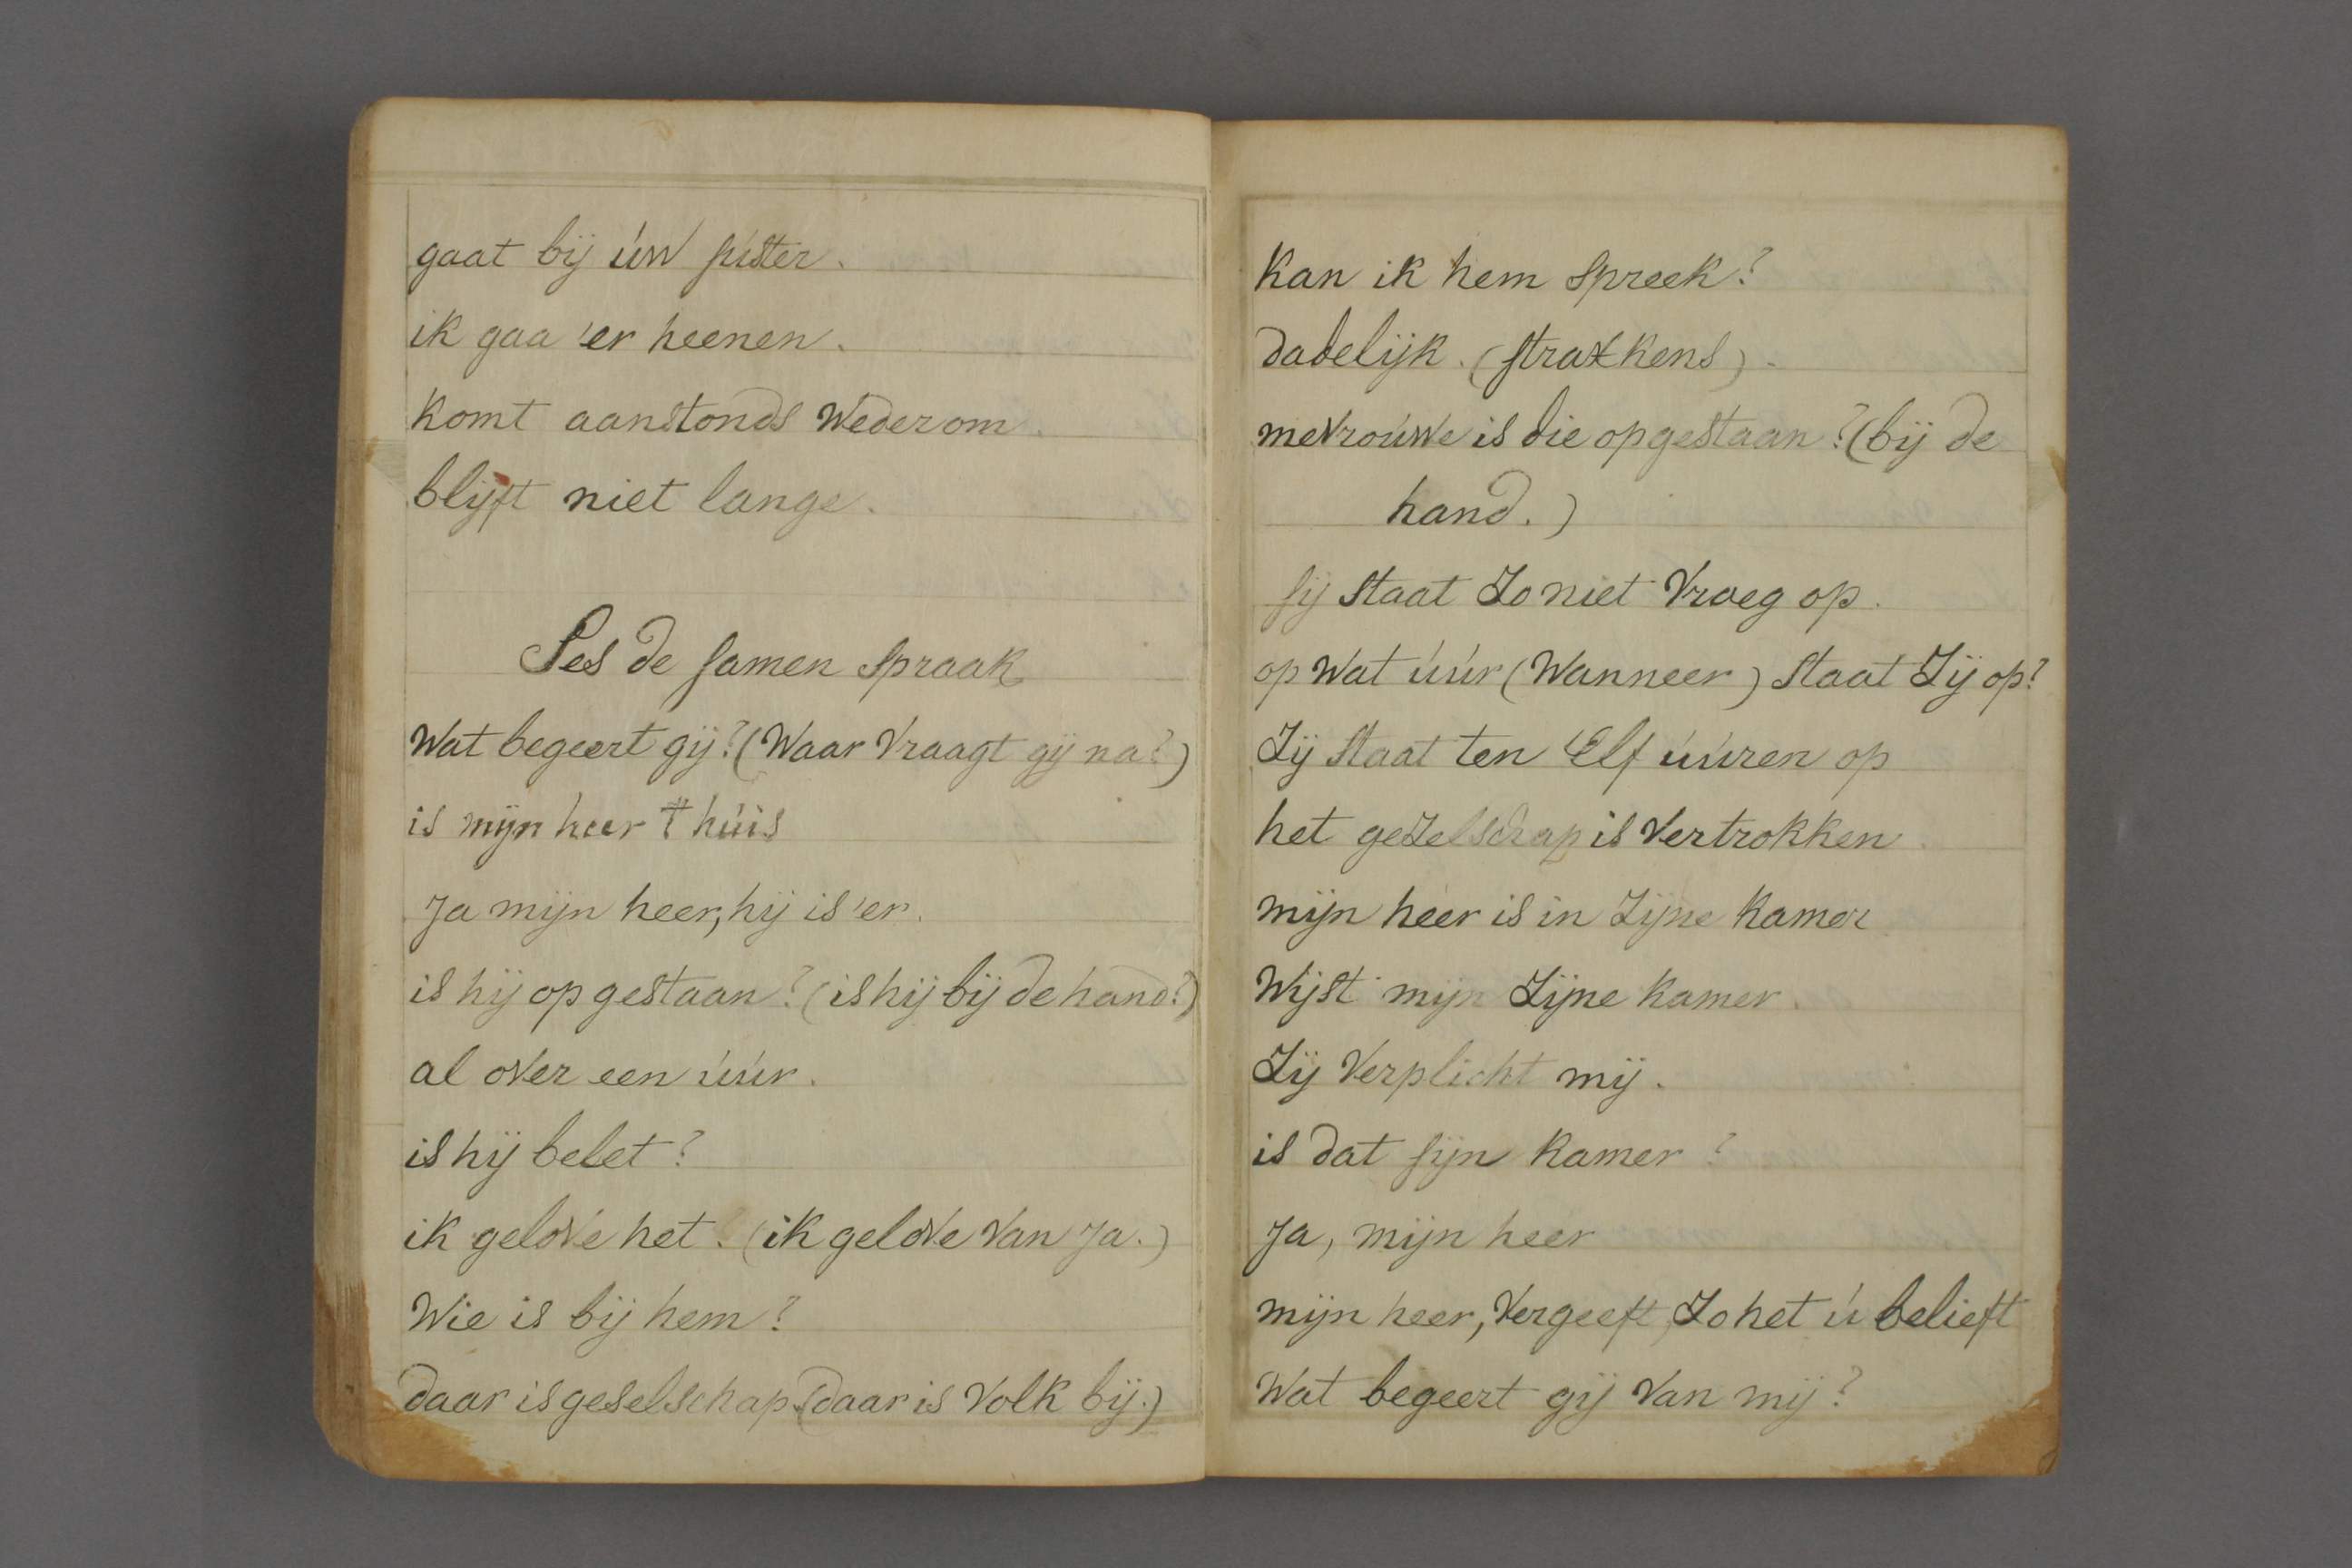 gaat bij úw súster.
ik gaa 'er heenen.
komt aanstonds Wederom.
blijft niet lange.
Ses de samen spraak
Wat begeert gij? (Waar Vraagt gij na?)
is mijn heer 't húis
Ja mijn heer, hij is 'er.
is hij op gestaan? (is hij bij de hand?)
al over een úúr.
is hij belet?
ik gelove het. (ik gelove van Ja.)
Wie is bij hem?
daar is geselschap. (daar is Volk bij.)
Kan ik hem spreek?
dadelijk. (straxkens).
mevroúwe is die opgestaan? (bij de
hand.)
sij staat Zo niet Vroeg op.
op Wat úúr (Wanneer) staat Zij op?
Zij staat ten Elf úúren op
het gezelschap is Vertrokken.
mijn heer is in Zijne Kamer
Wijst mijn Zijne Kamer.
Zij Verplicht mij.
is dat sijn Kamer?
Ja, mijn heer
mijn heer, Vergeeft, Zo het ú belieft
Wat begeert gij Van mij?